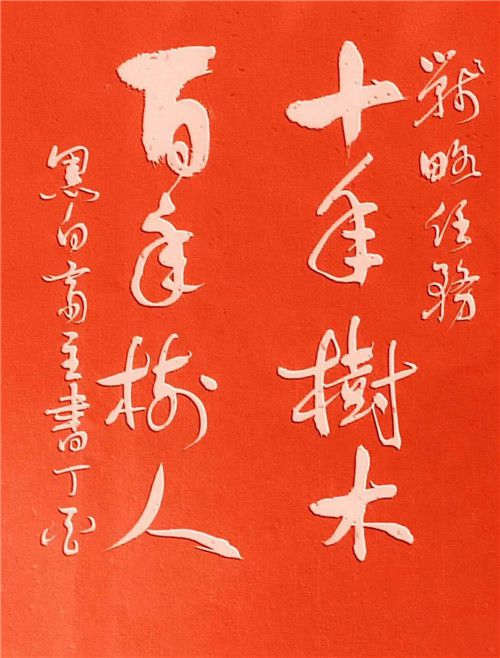 戰略任務
十年樹木
百年树人
黑白斋主書丁酉